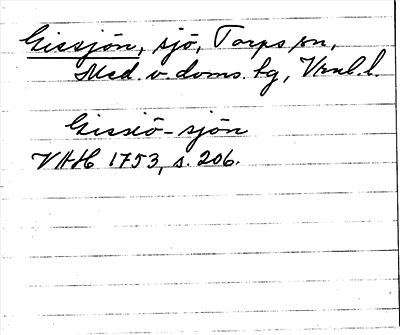 Gissjön, sjö, Torps sn,
Med. v. doms. tg, Vrnl. l.
Gissiö-sjön
VAH 1753, s. 206.